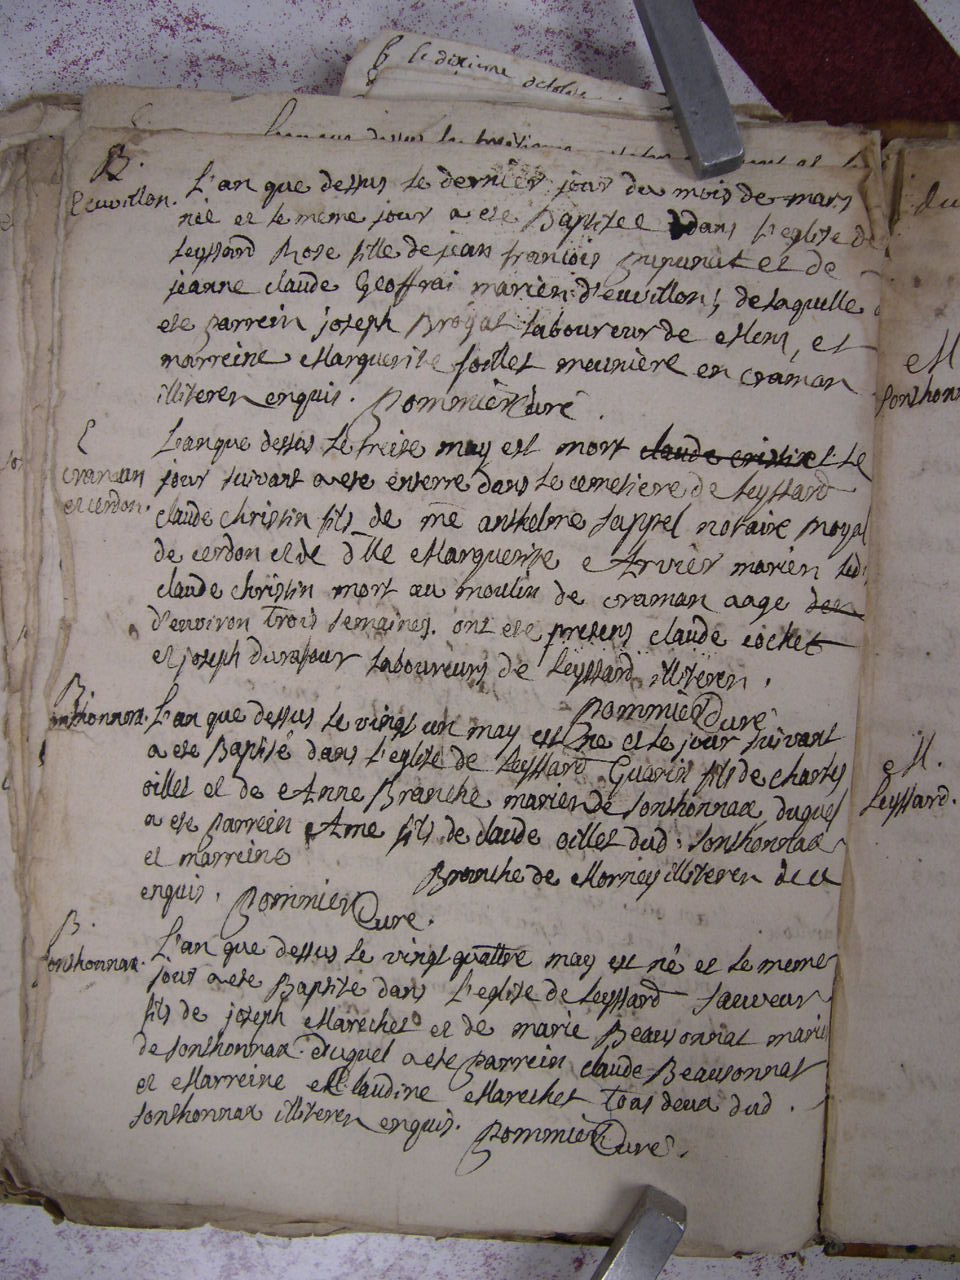 le dixieme
octobre
B.
L'an que dessus le dernier jour du mois de mars
Leuvillon.
née et le meme jour a ete Baptisee dans l'eglise de
Leyssard Rose fille de jean francois et de
jeanne claude Geoffrai mariez d'euvillon, de laquelle a
ete parrein joseph Broyat laboureur de et
marreine Marguerite follet meunière en craman
illiteren enquis. Pommier Curé
L'an que dessus le treise may est mort claude cristin et le
craman
jour suivant a ete enterré dans le cemetiere de Leyssard
et cerdon.
claude christin fils de me anthelme sappel notaire Royal
de cerdon et de dlle Marguerite Arvier mariez led.
claude christin mort au moulin de craman aage
d'environ trois semaines. ont ete presens claude cochet
et joseph durafour laboureurs de Leyssard illiteren.
Pommier Curé
B.
sonthonnax. L'an que dessus le vingt un may est né et le jour suivant
a ete Baptisé dans l'eglise de Leyssard Guerin fils de charles
oillet et de Anne Branche mariez de sonthonnax duquel
a ete parrein Ame fils de claude oillet dud. sonthonnax
et marreine Branche de Mornay illiteren de ce
enquis. Pommier Curé.
B.
L'an que dessus le vingt quattre may est né et le meme
sonthonnax.
jour a ete Baptisé dans l'eglise de Leyssard sauveur
fils de joseph Marechet et de marie Beausonnat mariez
de sonthonnax. duquel a ete parrein claude Beausonnat
et Marreine Claudine Marechet tous deux dud.
sonthonnax illiteren enquis. Pommier Curé.
M.
Leyssard.